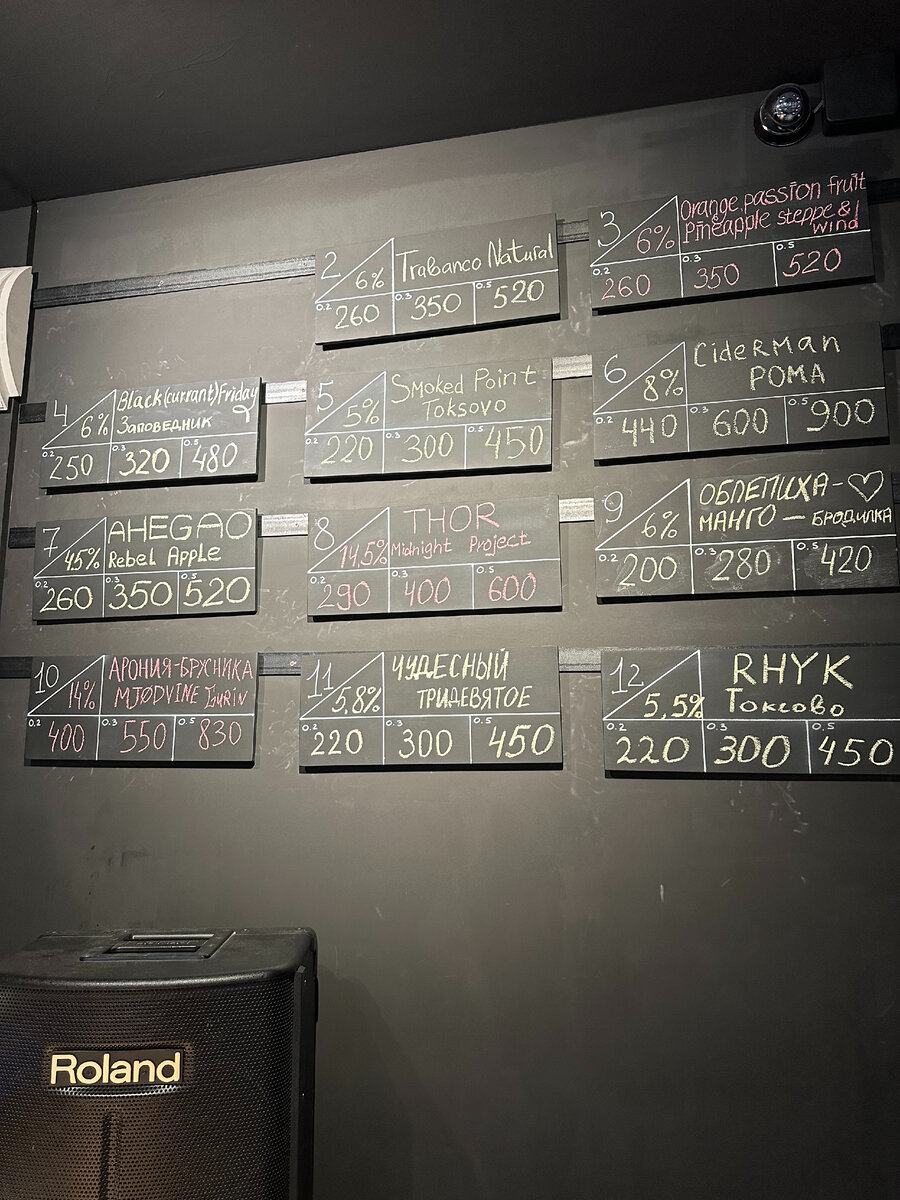 2
6%
Trabanco Natural
0.2 0.3 0.5
260 350 520
3
6%
Orange passion fruit
Pineapple steppe &
wind
0.2 0.3 0.5
260 350 520
4
6%
Black(currant)Friday
Заповедник
0.2 0.3 0.5
250 320 480
5
5%
Smoked Point
Toksovo
0.2 0.3 0.5
220 300 450
6
8%
Ciderman
РОМА
0.2 0.3 0.5
440 600 900
7
4.5%
AHEGAO
Rebel Apple
0.2 0.3 0.5
260 350 520
8
14.5%
THOR
Midnight Project
0.2 0.3 0.5
290 400 600
9
6%
ОБЛЕПИХА-♡
МАНГО — БРОДИЛКА
0.2 0.3 0.5
200 280 420
10
14%
АРОНИЯ-БРУСНИКА
MJØDVINE
0.2 0.3 0.5
400 550 830
11
5,8%
ЧУДЕСНЫЙ
ТРИДЕВЯТОЕ
0.2 0.3 0.5
220 300 450
12
5,5%
RHYK
Токсово
0.2 0.3 0.5
220 300 450
Roland